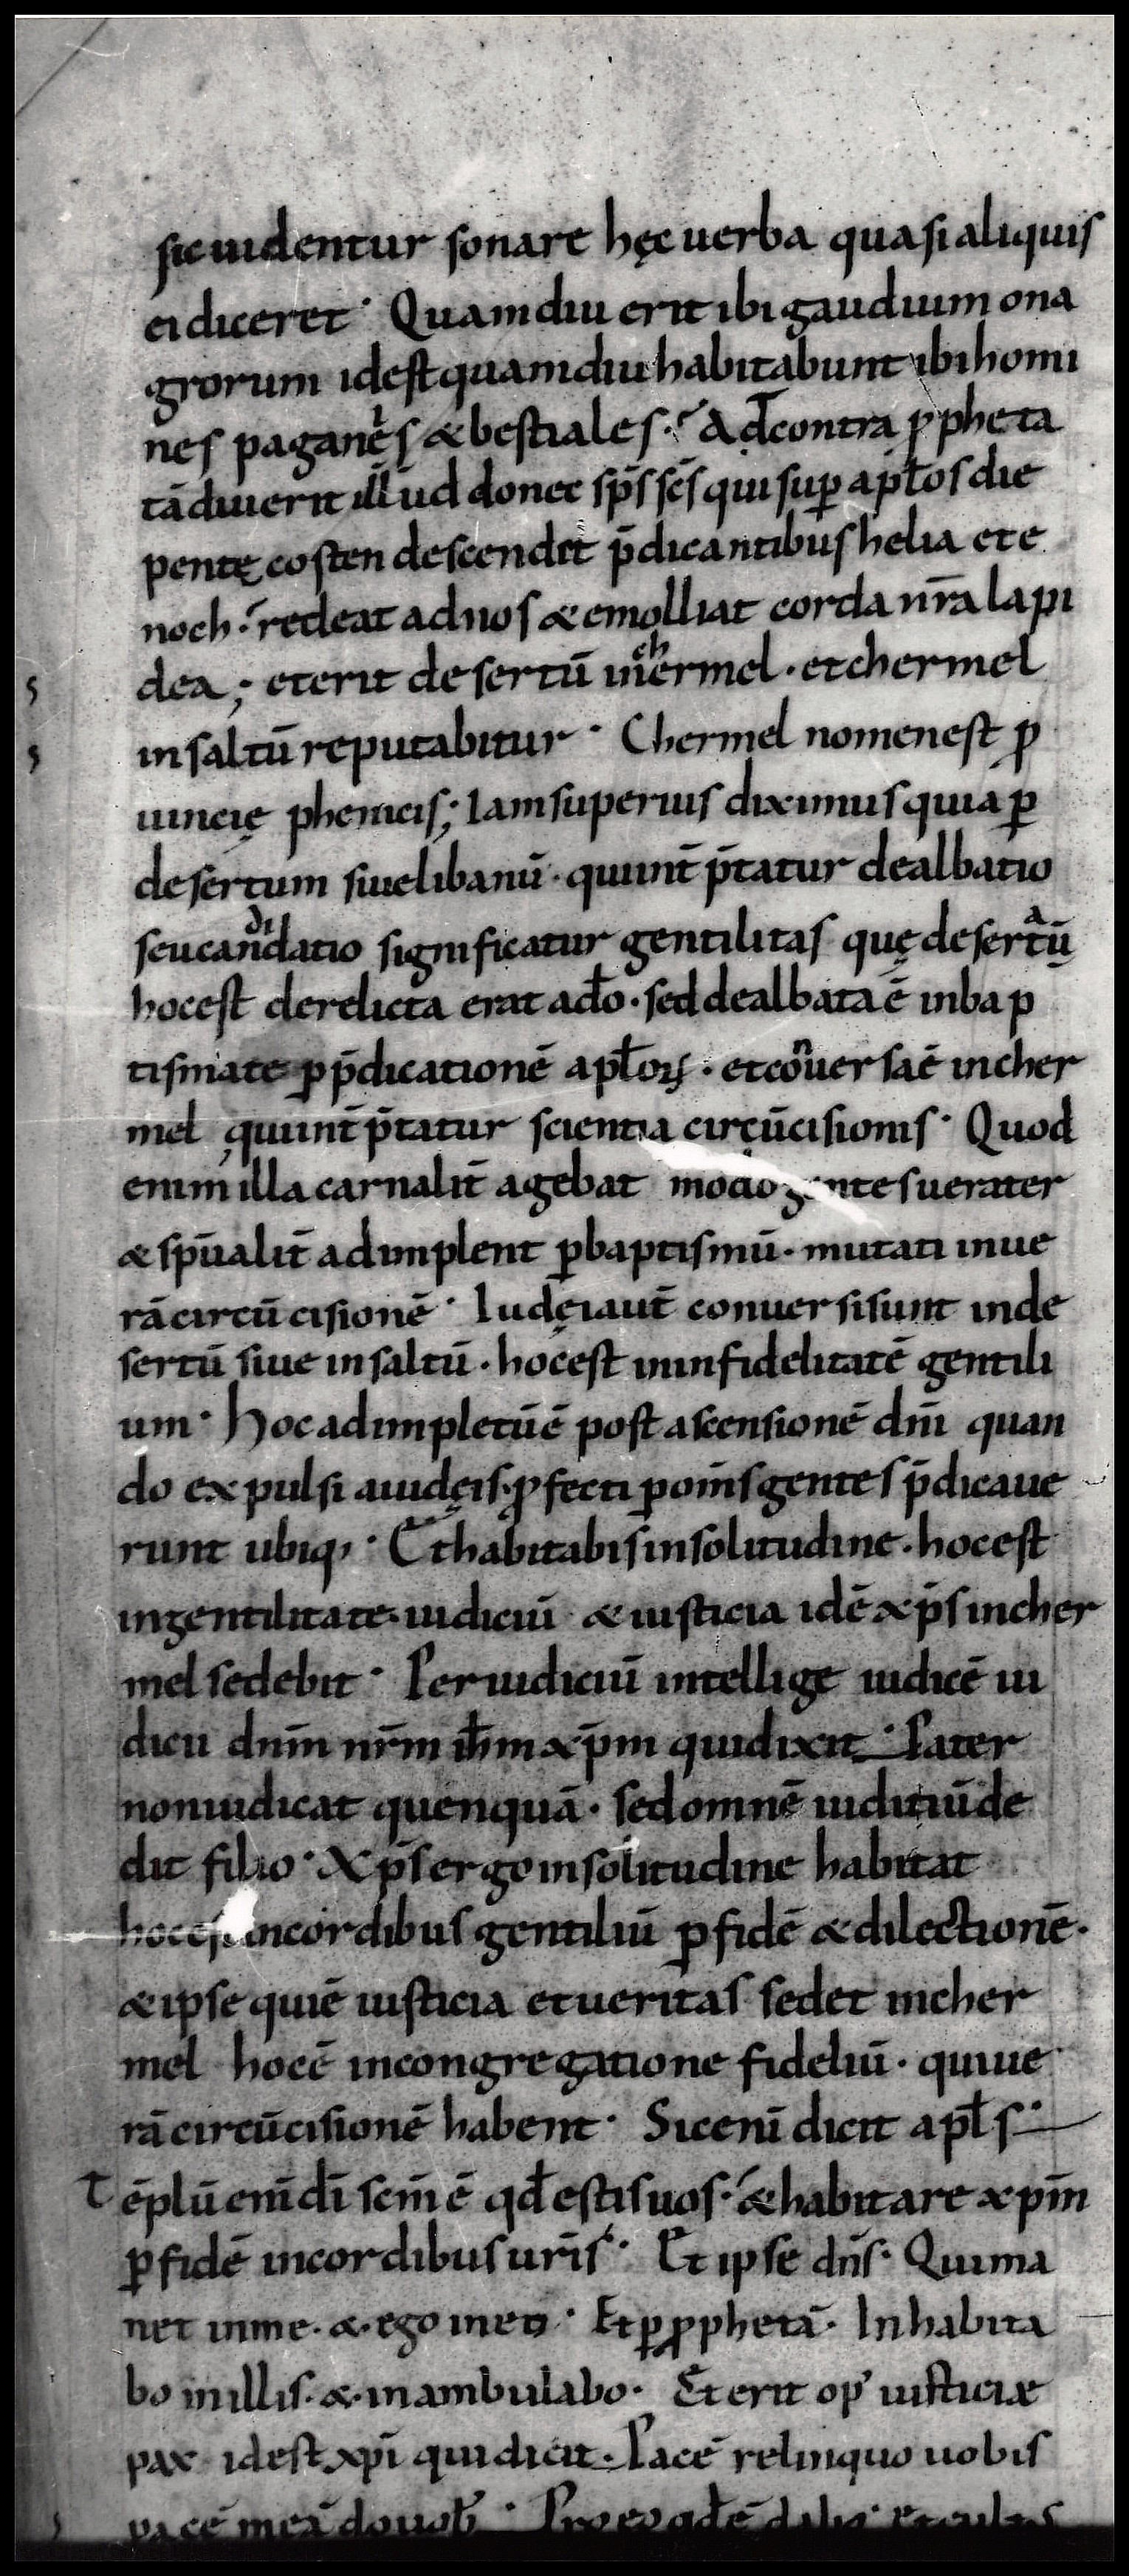 sicuidentur sonare hęc uerba quasi aliquis
ei diceret · Quamdiu erit ibi gaudium ona
grorum idest quamdiu habitabunt ibi homi
nes paganęs & bestiales · Adcontra ꝓpheta
tā diu erit illud donec sp̄s sc̄s qui suꝑ apłos die
pentęcosten descendit p̄dicantibus helia et e
noch · redeat ad nos & emolliat corda nr̄a lapi
dea ; et erit desertū in chermel · et chermel
in saltū reputabitur · Chermel nomen est ꝓ
uincię phenicis ; Iam superius diximus quia ꝑ
desertum siue libanū · qui int̄p̄tatur dealbatio
seu candidatio significatur gentilitas quę deserta
hoc est derelicta erat a dō · sed dealbata ē in bap
tismate ꝑ p̄dicationē apłoꝝ · et cōuersa ē in cher
mel qui int̄p̄tatur scientia circūcisionis · Quod
enim illa carnalit̄ agebat modo gentes uerater
& sp̄ualit̄ adimplent ꝑ baptismū · mutati in ue
rā circūcisionē · Iudęi aut̄ conuersi sunt in de
sertū siue in saltū · hoc est in infidelitatē gentili
um · Hoc adimpletū ē post ascensionē dn̄i quan
do expulsi a iudęis · ꝓfecti ꝑ om̄s gentes p̄dicaue
runt ubiq; · Et habitabis in solitudine · hoc est
in gentilitate · iudiciū & iusticia idē xp̄s in cher
mel sedebit · Per iudiciū intellige iudicē iu
dicii dn̄m nr̄m ih̄m xp̄m qui dixit · Pater
non iudicat quenquā · sed omnē iuditiū de
dit filio · Xp̄s ergo in solitudine habitat
hoc est in cordibus gentiliū ꝑ fidē & dilectionē ·
& ipse qui ē iusticia et ueritas sedet in cher
mel hoc ē in congregatione fideliū · qui ue
rā circūcisionē habent · Sic eni dicit apłs ·
Tēplū eni dī scm̄ ē qđ estis uos · & habitare xp̄m
ꝑ fidē in cordibus ur̄is · Et ipse dn̄s · Qui ma
net in me · & ego in eo · Et ꝑ ꝓphetā · Inhabita
bo in illis · & inambulabo · Et erit op' iusticiæ
pax idest xp̄i qui dicit · Pacē relinquo uobis
pacē meā do uob̄